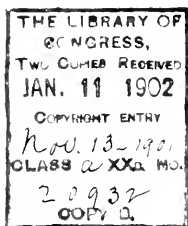 THE LIBRARY OF
CONGRESS,
TWO COPIES RECEIVED
JAN. 11 1902
COPYRIGHT ENTRY
Nov. 13-1901
CLASS a XXc. NO.
20932
COPY B.